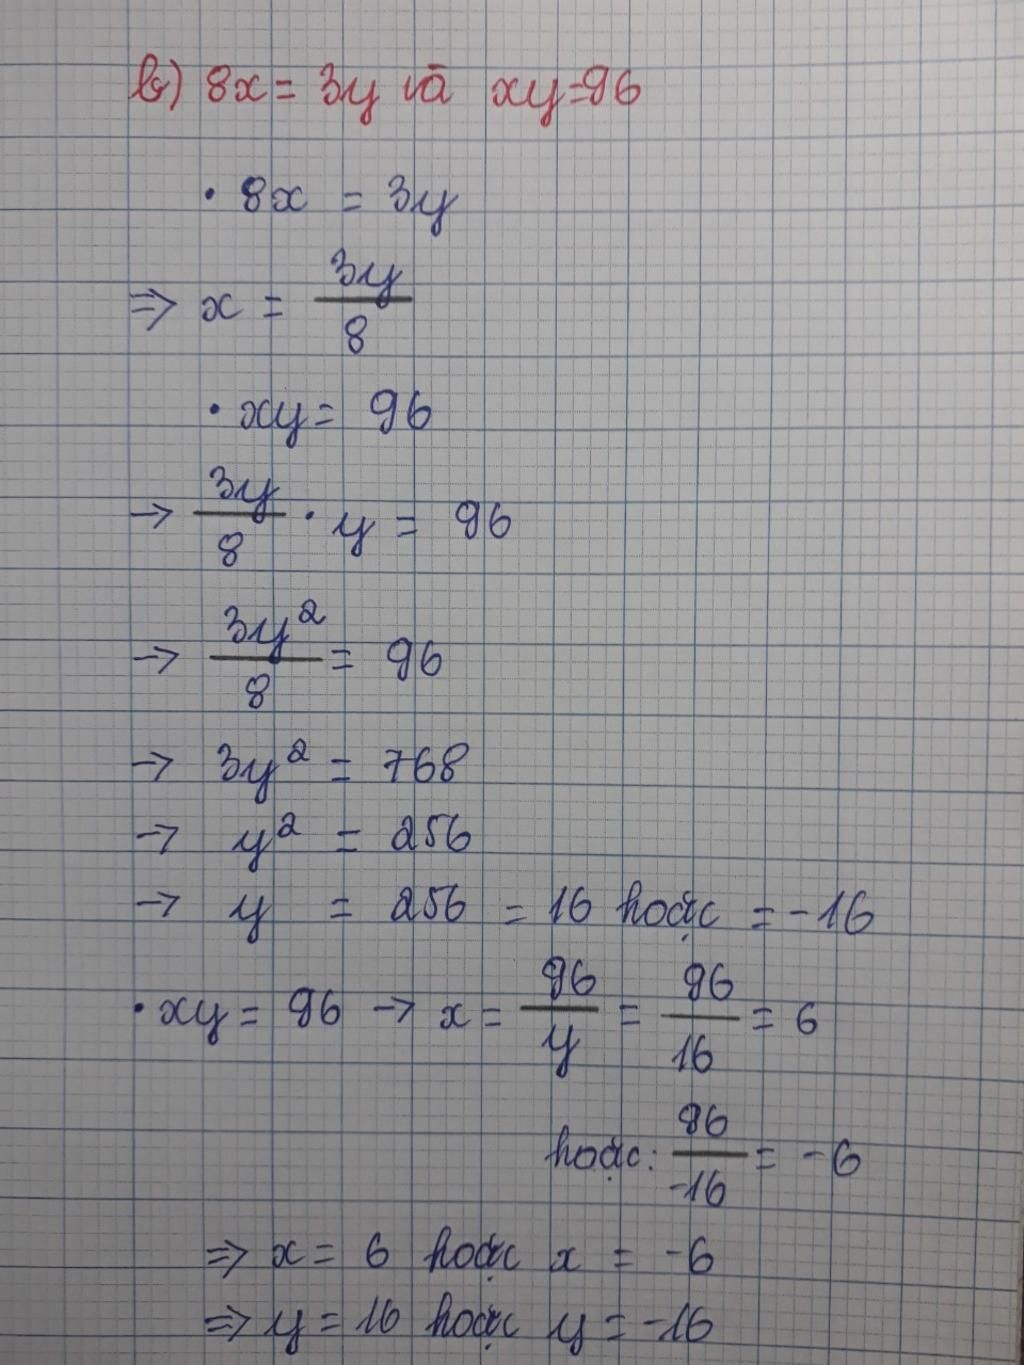 b) 8x = 3y và xy=96
• 8x = 3y
⇒ x = 3y/8
• xy = 96
→ 3y/8 • y = 96
→ 3y²/8 = 96
→ 3y² = 768
→ y² = 256
→ y = 256 = 16 hoặc = -16
• xy = 96 → x = 96/y = 96/16 = 6
hoặc: 96/-16 = -6
⇒ x = 6 hoặc x = -6
⇒ y = 16 hoặc y = -16